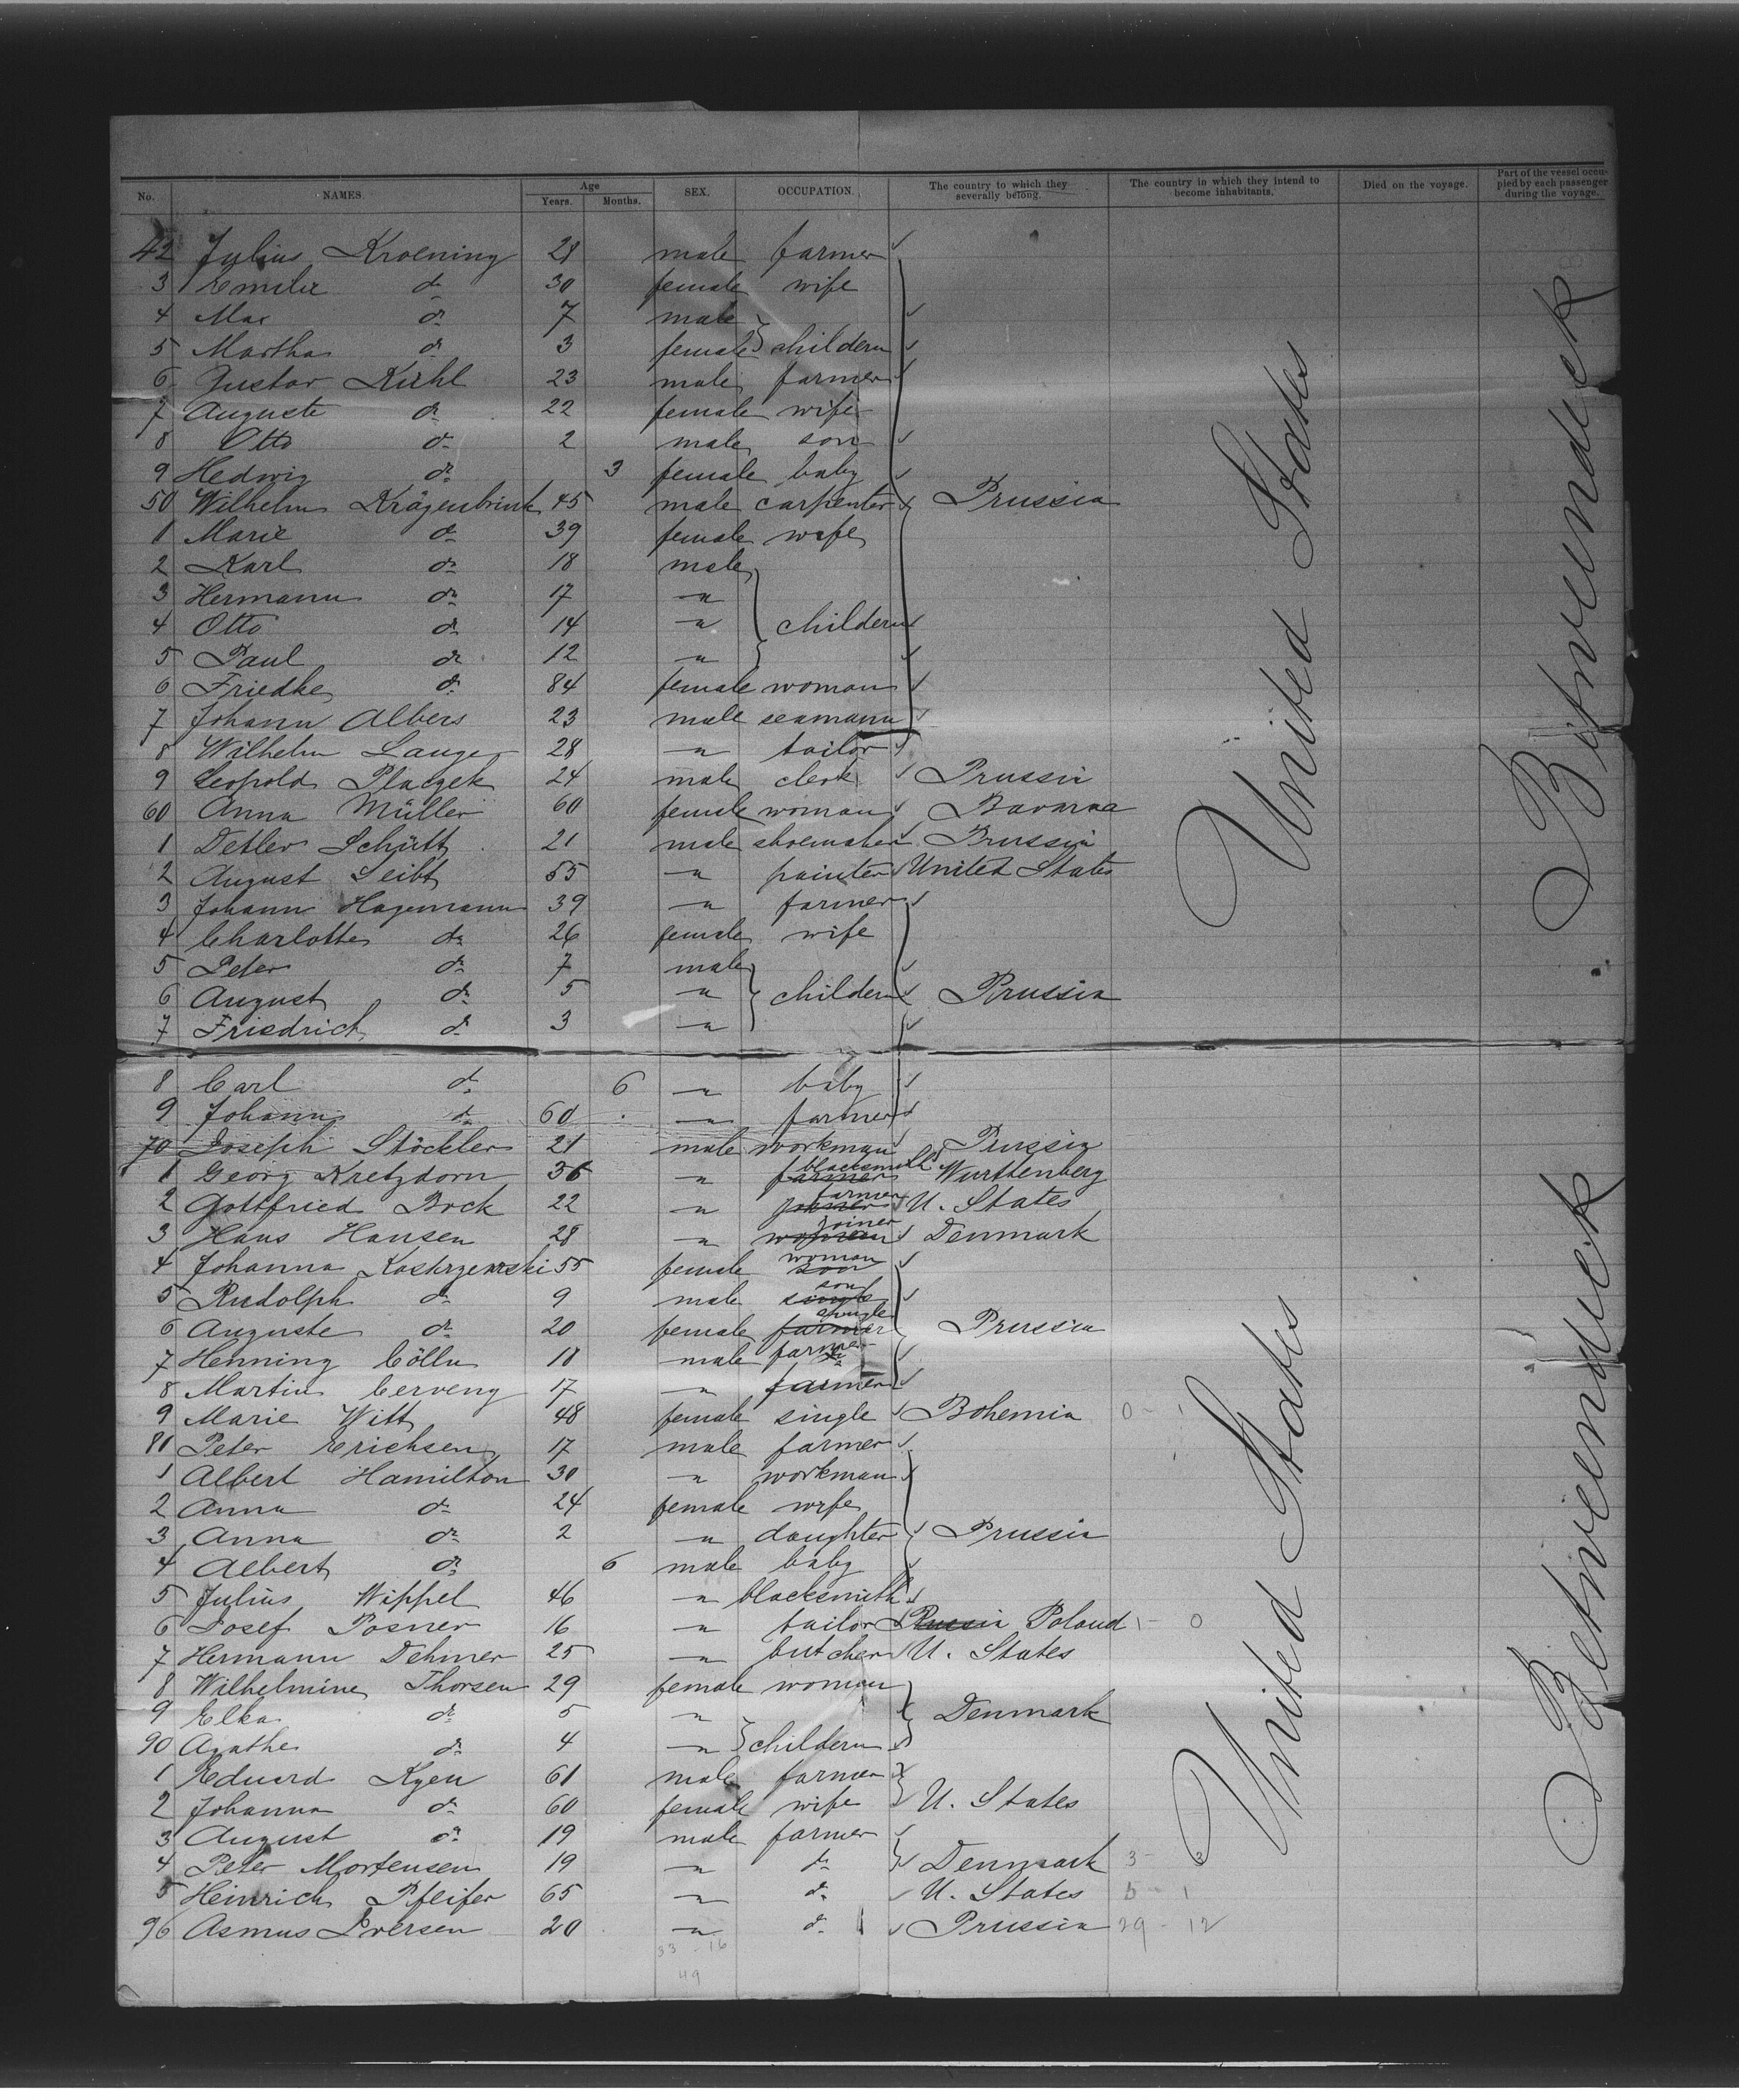 No. NAMES. Age Years. Months. SEX. OCCUPATION. The country to which they severally belong. The country in which they intend to become inhabitants. Died on the voyage. Part of the vessel occupied by each passenger during the voyage.
42 Julius Kroening 28 male farmer
3 Emilie do 30 female wife
4 Max do 7 male
5 Martha do 3 female childern
6 Gustav Kuhl 23 male farmer
7 Auguste do 22 female wife
8 Otto do 2 male son
9 Hedwig do 3 female baby
50 Wilhelm Krägenbrink 45 male carpenter Prussia
1 Marie do 39 female wife
2 Karl do 18 male
3 Hermann do 17 "
4 Otto do 14 " childern
5 Paul do 12 "
6 Friedke do 84 female woman
7 Johann Albers 23 male seamann
8 Wilhelm Langer 28 " tailor
9 Leopold Placzek 24 male clerk Prussia
60 Anna Müller 60 female woman Bavaria
1 Detlev Schütt 21 male shoemaker Prussia
2 August Seibt 55 " painter United States
3 Johann Hagemann 39 " farmer
4 Charlotte do 26 female wife
5 Peter do 7 male
6 August do 5 " childern Prussia
7 Friedrich do 3 "
8 Carl do 6 " baby
9 Johann do 60 " farmer
70 Joseph Stöckler 21 male workman Prussia
1 Georg Kretzdorn 36 " farmer blacksmith Wurttenberg
2 Gottfried Bock 22 " joiner farmer U. States
3 Hans Hansen 28 " woman joiner Denmark
4 Johanna Kaskrzewski 55 female son woman
5 Rudolph do 9 male single son
6 Auguste do 20 female farmer single Prussia
7 Henning Cölln 18 male farmer
8 Martin Cerveny 17 " farmer
9 Marie Witt 48 female single Bohemia 0 - 1
80 Peter Erichsen 17 male farmer
1 Albert Hamilton 30 " workman
2 Anna do 24 female wife
3 Anna do 2 " daughter Prussia
4 Albert do 6 male baby
5 Julius Wippel 46 " blacksmith
6 Josef Posner 16 " tailor Russia Poland 1 - 0
7 Hermann Dehmer 25 " butcher U. States
8 Wilhelmine Thorsen 29 female woman
9 Elka do 5 " Denmark
90 Agathe do 4 " childern
1 Eduard Kyen 61 male farmer
2 Johanna do 60 female wife U. States
3 August do 19 male farmer
4 Peter Mortensen 19 " do Denmark 3 - 3
5 Heinrich Pfeifer 65 " do U. States 5 - 1
96 Asmus Iversen 20 " do Prussia 29 - 12
33 - 16
49
United States
Betweendeck
United States
Betweendeck